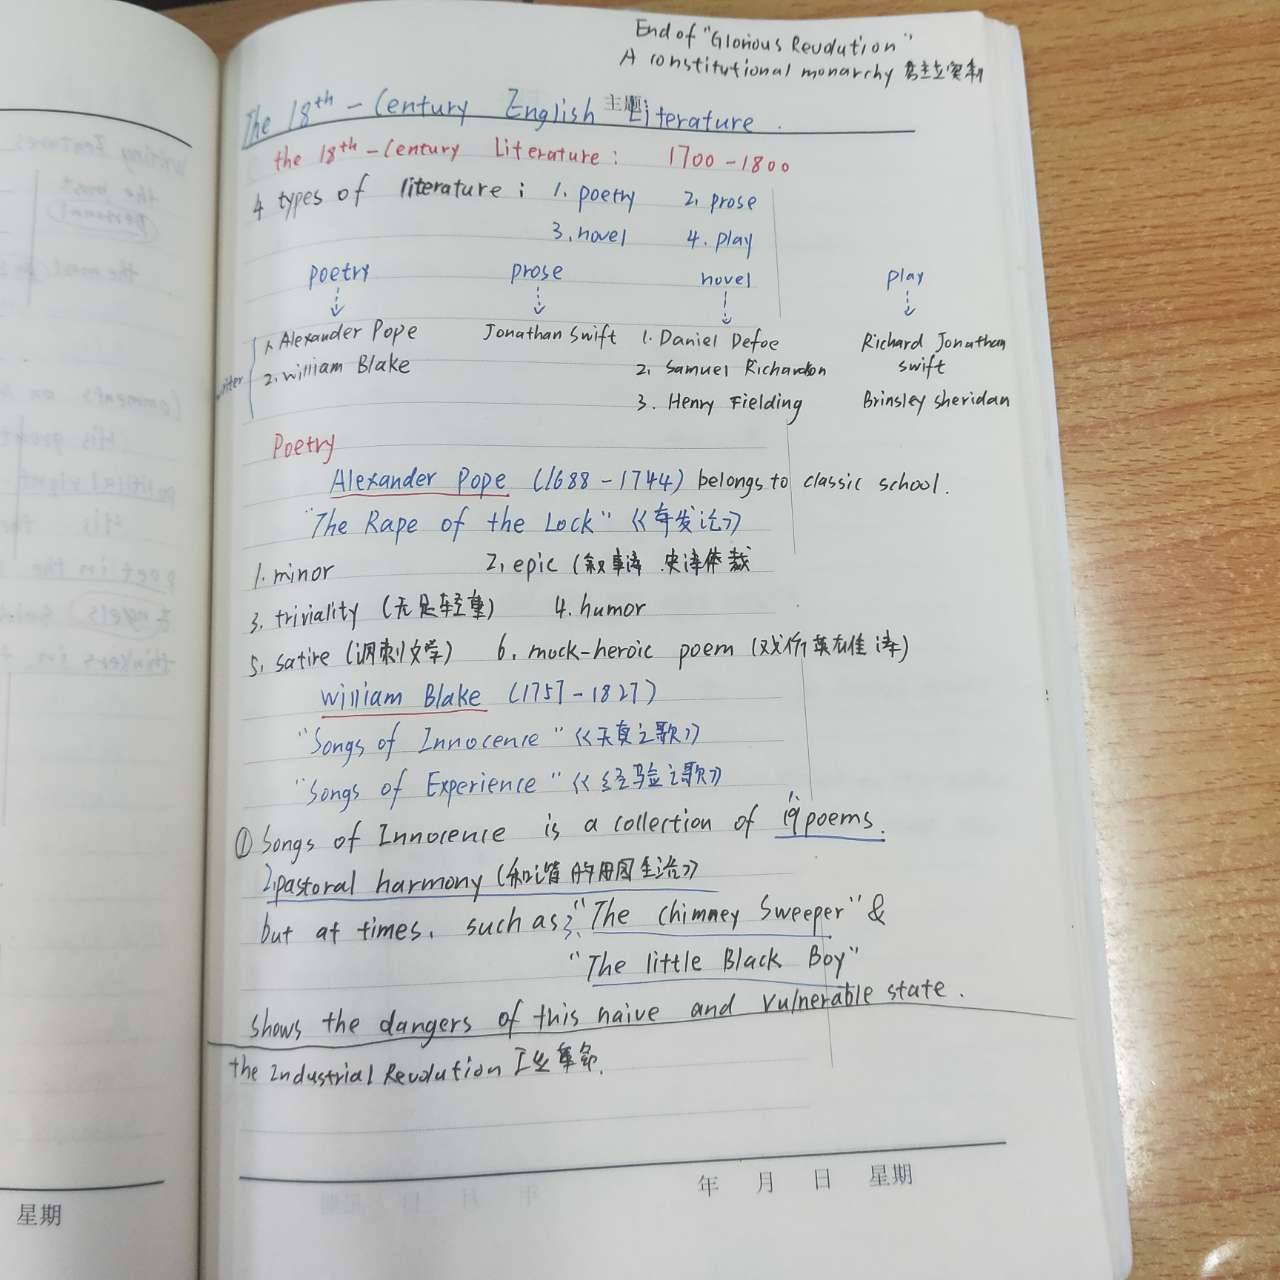 End of "Glorious Revolution"
A constitutional monarchy 君主立宪制
主题
The 18th-Century English Literature.
the 18th-Century Literature: 1700-1800
4 types of literature: 1. poetry 2. prose
3. novel 4. play
poetry prose novel play
1. Alexander Pope Jonathan Swift 1. Daniel Defoe Richard Jonathan
2. William Blake 2. Samuel Richardson swift
3. Henry Fielding Brinsley sheridan
Poetry
Alexander Pope (1688-1744) belongs to classic school.
"The Rape of the Lock"《夺发记》
1. minor 2. epic (叙事诗 史诗体裁
3. triviality (无足轻重) 4. humor
5. satire (讽刺文学) 6. mock-heroic poem (戏仿英雄诗)
William Blake (1757-1827)
"Songs of Innocence"《天真之歌》
"Songs of Experience"《经验之歌》
① Songs of Innocence is a collection of 1. 19 poems.
2. pastoral harmony (和谐的田园生活)
but at times, such as 3. "The chimney Sweeper" &
"The little Black Boy"
shows the dangers of this naive and vulnerable state.
the Industrial Revolution 工业革命.
年 月 日 星期
星期